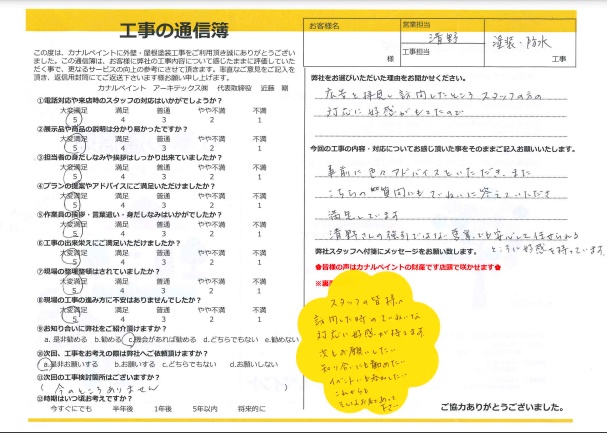 工事の通信簿
この度は、カナルペイントに外壁・屋根塗装工事をご利用頂き誠にありがとうござい
ました。この通信簿は、お客様に弊社の工事内容について感じたままに評価していた
だく事で、更なるサービスの向上の参考にさせて頂きます。率直なご意見をご記入を
頂き、返信用封筒にてご返送下さいます様お願い申し上げます。
カナルペイント アーキテックス㈱ 代表取締役 近藤 剛
①電話対応や来店時のスタッフの対応はいかがでしょうか?
大変満足 満足 普通 やや不満 不満
5 4 3 2 1
②展示品や商品の説明は分かり易かったですか?
大変満足 満足 普通 やや不満 不満
5 4 3 2 1
③担当者の身だしなみや挨拶はしっかり出来ていましたか?
大変満足 満足 普通 やや不満 不満
5 4 3 2 1
④プランの提案やアドバイスにご満足いただけましたか?
大変満足 満足 普通 やや不満 不満
5 4 3 2 1
⑤作業員の挨拶・言葉遣い・身だしなみはいかがでしたか?
大変満足 満足 普通 やや不満 不満
5 4 3 2 1
⑥工事の出来栄えにご満足いただけましたか?
大変満足 満足 普通 やや不満 不満
5 4 3 2 1
⑦現場の整理整頓はされていましたか?
大変満足 満足 普通 やや不満 不満
5 4 3 2 1
⑧現場の工事の進み方に不安はありませんでしたか?
大変満足 満足 普通 やや不満 不満
5 4 3 2 1
⑨お知り合いに弊社をご紹介頂けますか?
a. 是非勧める b.勧める c.機会があれば勧める d.どちらでもない e.勧めない
⑩次回、工事をお考えの際は弊社へご依頼頂けますか?
a.是非お願いする b.お願いする c.どちらでもない d.お願いしない
⑪次回の工事検討箇所はございますか?
( 今のところありません )
⑫時期はいつ頃お考えですか?
今すぐにでも 半年後 1年後 5年以内 将来的に
お客様名 様
営業担当 清野
工事担当
塗装・防水 工事
弊社をお選びいただいた理由をお聞かせください。
広告を拝見し訪問したところ スタッフの方の
対応に好感がもてたので
今回の工事の内容・対応についてお感じ頂いた事をそのままご記入お願いいたします。
事前に色々アドバイスをいただき、また
こちらの質問にもていねいに答えていただき
満足しています
清野さんの
安心して任せられる
ところに好感を持っています
弊社スタッフへ付箋にメッセージをお願い致します。
◆皆様の声はカナルペイントの財産です店頭で咲かせます◆
スタッフの皆様の
訪問した時のていねいな
対応に好感が持てます
次もお願いしたい…
知り合いにも勧めたい…
これからも
ご協力ありがとうございました。